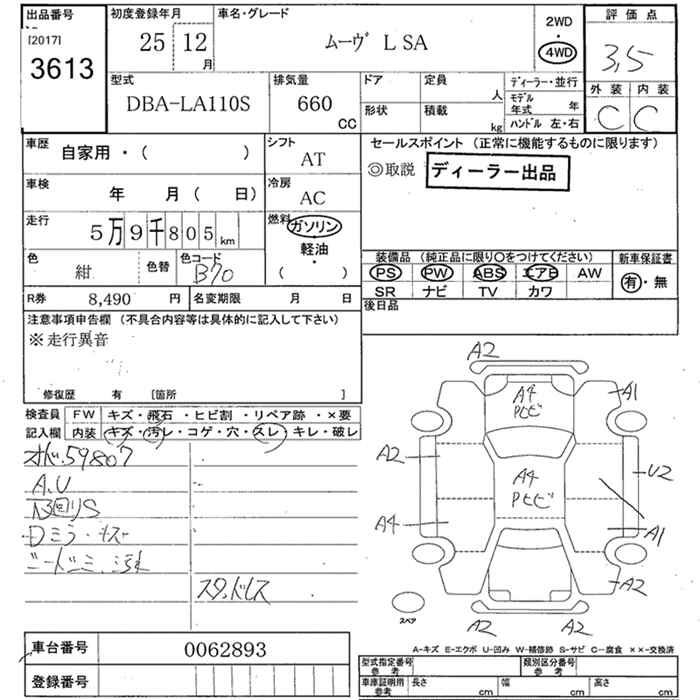 出品番号
[2017]
3613
初度登録年月
25 12
月
車名・グレード
ムーヴ L SA
2WD
・
4WD
評価点
3,5
外装 内装
C C
型式
DBA-LA110S
排気量
660
CC
ドア 定員
人
形状 積載
kg
ディーラー・並行
モデル
年式 年
ハンドル 左・右
車歴
自家用・( )
シフト
AT
セールスポイント (正常に機能するものに限ります)
◎取説 ディーラー出品
車検
年 月( 日)
冷房
AC
走行
5万9千805km
燃料
ガソリン
・
軽油
・
( )
色
紺
色替
色コード
B70
装備品 (純正品に限り○をつけてください)
PS PW ABS エアB AW
SR ナビ TV カワ
新車保証書
有・無
R券 8,490 円
名変期限 月 日
後日品
注意事項申告欄 (不具合内容等は具体的に記入して下さい)
※走行異音
修復歴 有 [箇所 ]
検査員
記入欄
FW キズ・飛石・ヒビ割・リペア跡・×要
内装 キズ・汚レ・コゲ・穴・スレ・キレ・破レ
オド59807
A.U
Dミラーキズ
スタッドレス
A2
A4
Pヒビ
A1
A2
A4
Pヒビ
U2
A4
A1
A2
A2
A2
スペア
A-キズ E-エクボ U-凹み W-補修跡 S-サビ C-腐食 ××-交換済
車台番号 0062893
登録番号
型式指定番号
参考
類別区分番号
参考
車庫証明用
参考
長さ cm
幅 cm
高さ cm